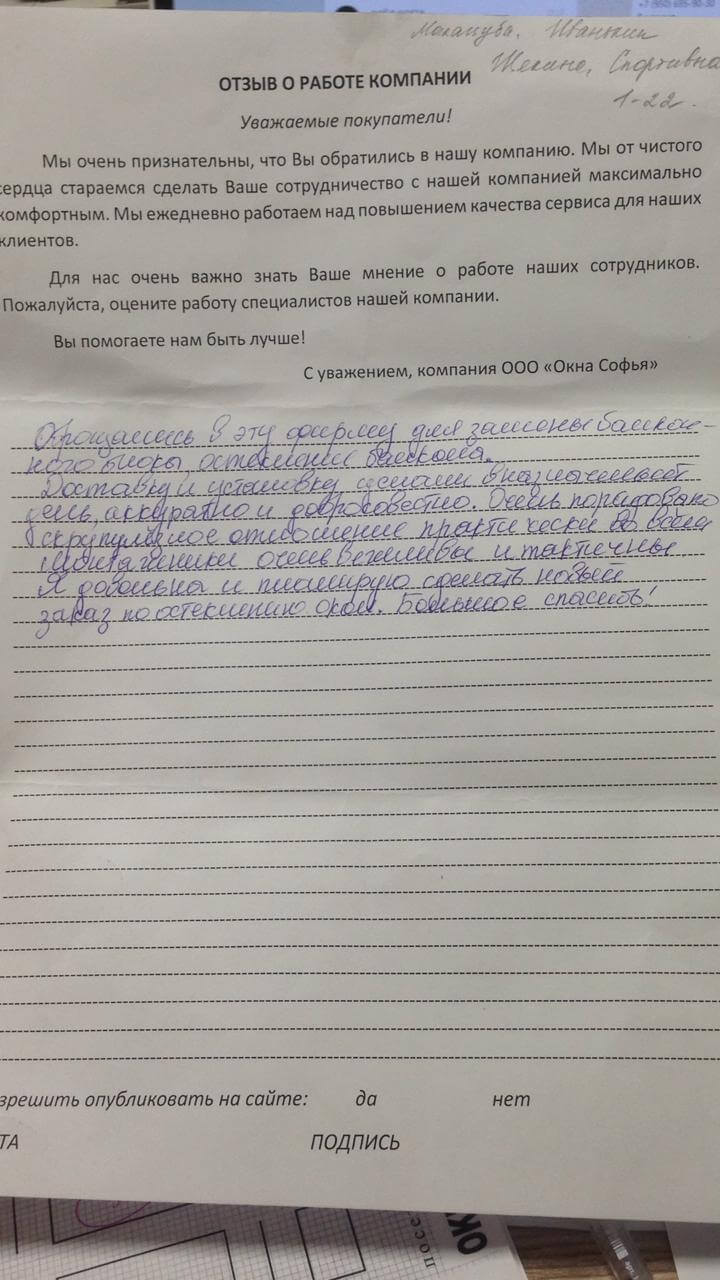 Иванькин
Щекино, Спортивна
1-22.
ОТЗЫВ О РАБОТЕ КОМПАНИИ
Уважаемые покупатели!
Мы очень признательны, что Вы обратились в нашу компанию. Мы от чистого
сердца стараемся сделать Ваше сотрудничество с нашей компанией максимально
комфортным. Мы ежедневно работаем над повышением качества сервиса для наших
клиентов.
Для нас очень важно знать Ваше мнение о работе наших сотрудников.
Пожалуйста, оцените работу специалистов нашей компании.
Вы помогаете нам быть лучше!
С уважением, компания ООО «Окна Софья»
Обращались в эту фирму для замены балкон-
ного блока, остекления балкона.
Доставку и установку сделали в назначенный
день, аккуратно и добросовестно. Очень порадовало
скрупулезное отношение практически во всём
Монтажники очень вежливы и тактичны
Я довольна и планирую сделать новый
заказ по остеклению окон. Большое спасибо!
зрешить опубликовать на сайте: да нет
ТА ПОДПИСЬ
посе
ОК